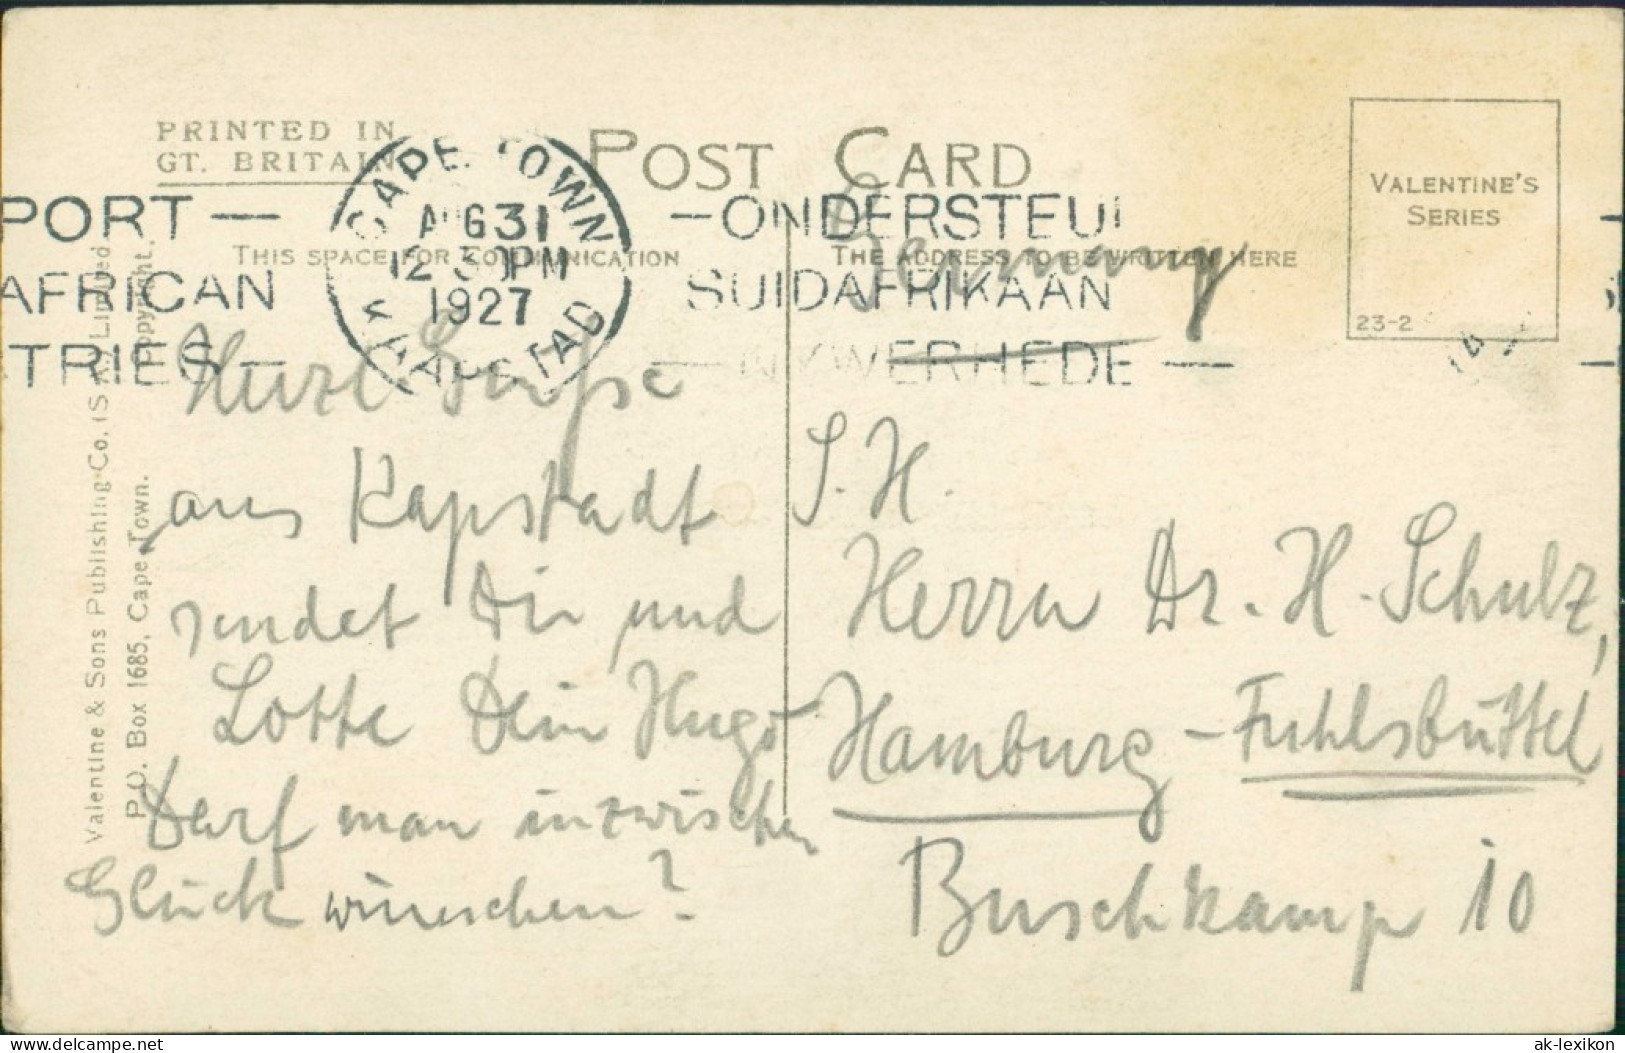 PRINTED IN
GT. BRITAIN
POST CARD
VALENTINE'S
SERIES
23-2
PORT —
AFRICAN
TRIES —
CAPE TOWN
AUG 31
12 30 PM
1927
KAAPSTAD
— ONDERSTEU
SUIDAFRIKAAN
— NYWERHEDE —
THIS SPACE FOR COMMUNICATION
THE ADDRESS TO BE WRITTEN HERE
Germany
Valentine & Sons Publishing Co. (S.A.) Limited
P.O. Box 1685, Cape Town. Copyright.
Herzl. Grüße
aus Kapstadt
sendet Dir und
Lotte Dein Hugo
Darf man inzwischen
Glück wünschen?
S. H.
Herrn Dr. H. Schulz,
Hamburg - Fuhlsbüttel
Buschkamp 10
delcampe.net
ak-lexikon